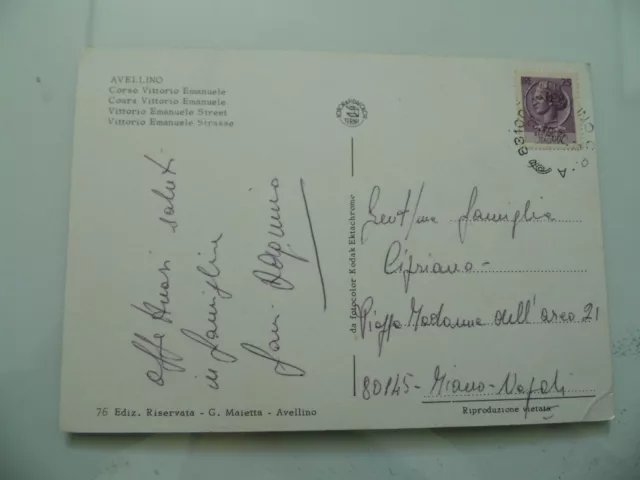 AVELLINO
Corso Vittorio Emanuele
Cours Vittorio Emanuele
Vittorio Emanuele Street
Vittorio Emanuele Strasse
saluti
in famiglia
76 Ediz. Riservata - G. Maietta - Avellino
da fotocolor Kodak Ektachrome
83100
Gent/ma famiglia
Cipriano -
Piazza Madonna dell'arco 21
80145 - Miano - Napoli
Riproduzione vietata